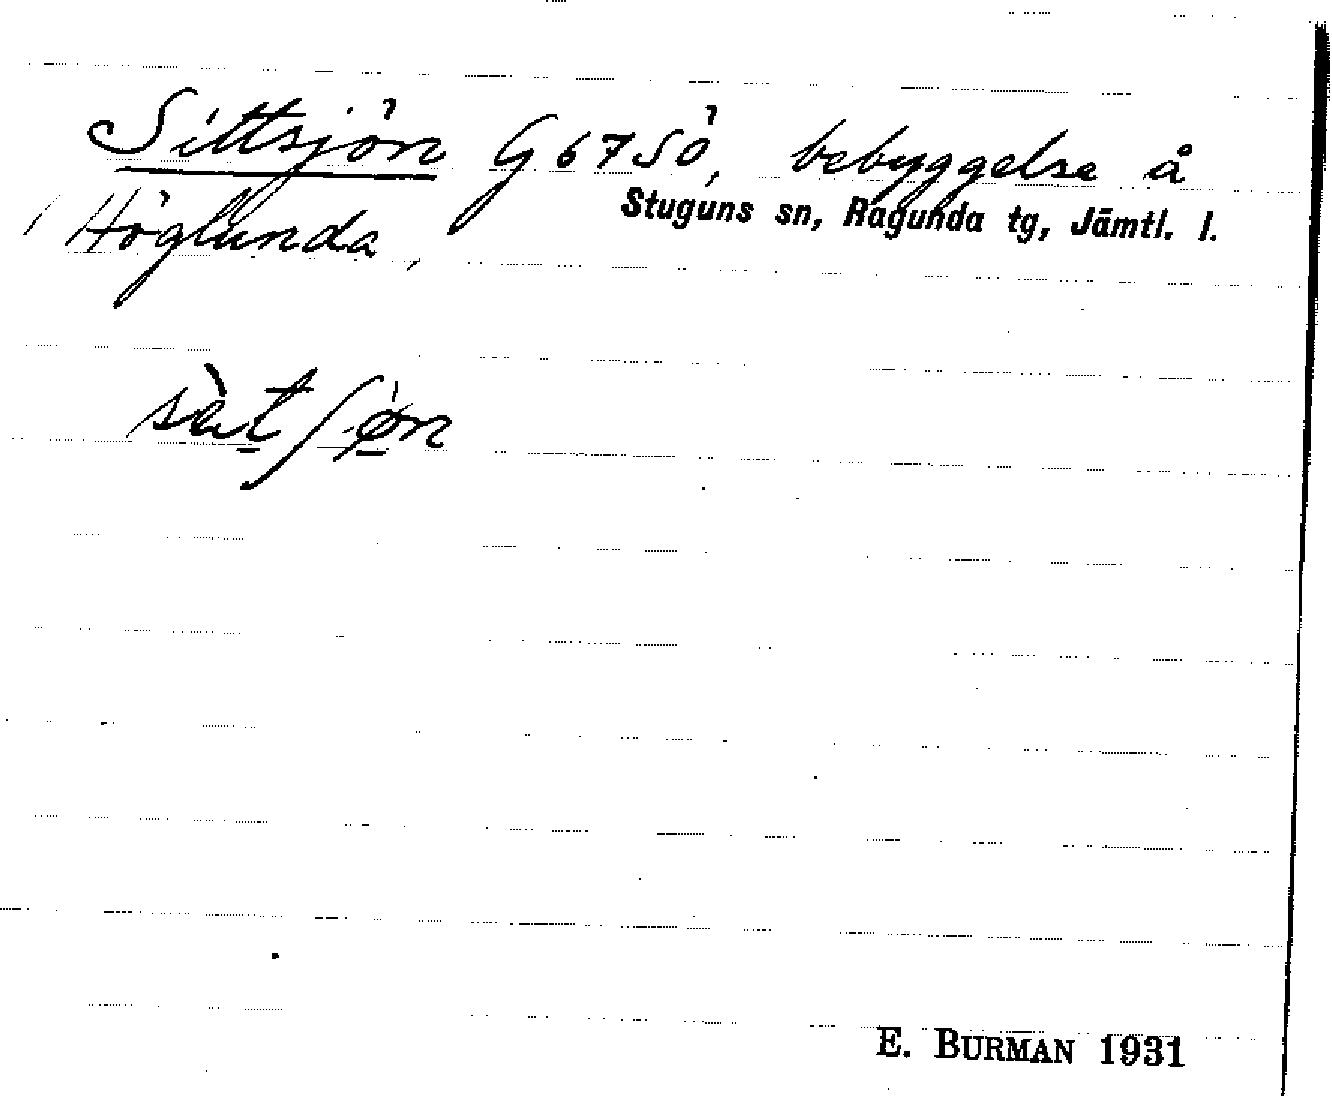 Sittsjön G 67 SÖ, bebyggelse å
Stuguns sn, Ragunda tg, Jämtl. l.
Höglunda,
E. BURMAN 1931